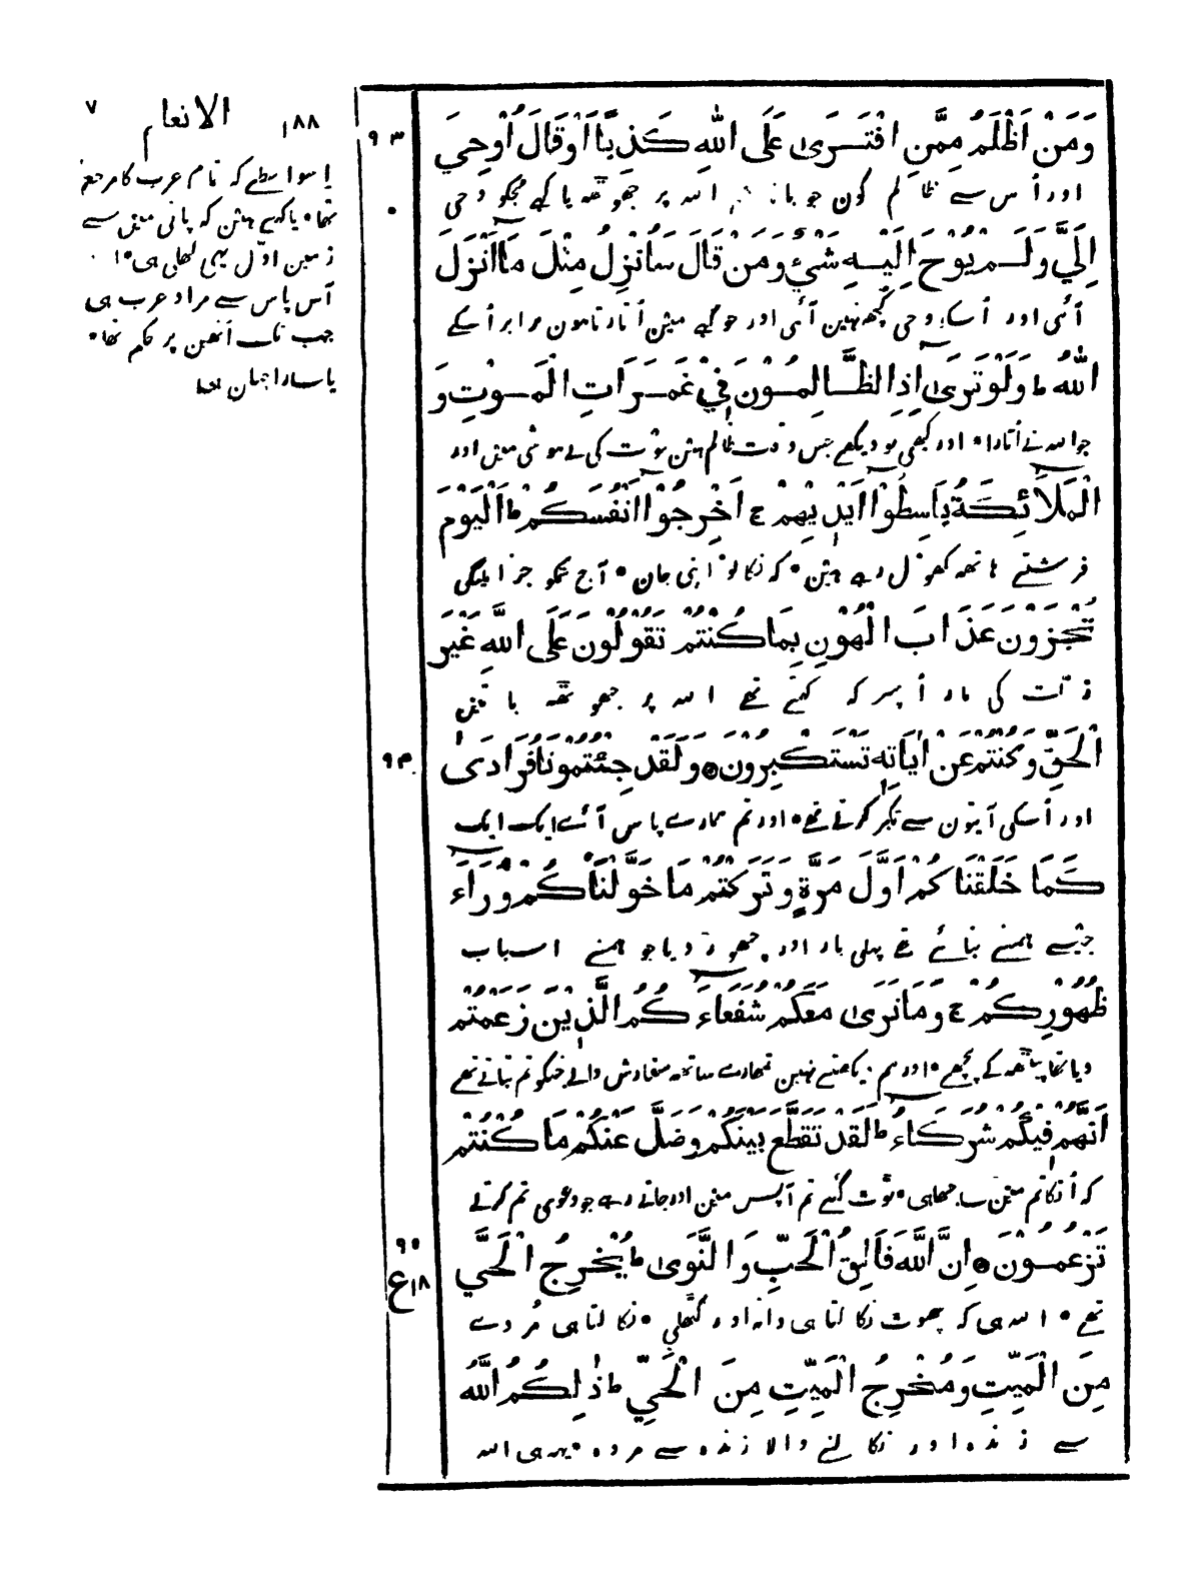 ١٨٨ الانعام ٧
اسواسطے کہ تمام عرب کا مرجع
تھا٠ یا کہے ہین کہ پانی مین سے
زمین اوّل یہی کھلی ہی٠ ١
آس پاس سے مراد عرب ہی
جب تک اُنھین پر حکم تھا٠
یا سارا جہان
٩٣ وَمَنْ اَظْلَمُ مِمَّنِ افْتَرَىٰ عَلَى اللّٰهِ كَذِبًا اَوْ قَالَ اُوْحِيَ
اور اُس سے ظالم کون جو باندھے اللہ پر جھوٹھہ یا کہے مجکو وحی
اِلَيَّ وَلَمْ يُوْحَ اِلَيْهِ شَيْءٌ وَمَنْ قَالَ سَاُنْزِلُ مِثْلَ مَا اَنْزَلَ
آئی اور اُسکو وحی کچھ نہین آئی اور جو کہے مین اُتارتا ہون برابر اُسکے
اللّٰهُ ط وَلَوْ تَرَىٰ اِذِ الظَّالِمُوْنَ فِيْ غَمَرَاتِ الْمَوْتِ وَ
جو اللہ نے اُتارا٠ اور کبھی تو دیکھے جس وقت ظالم ہین موت کی بےہوشی مین اور
الْمَلَآئِكَةُ بَاسِطُوْا اَيْدِيْهِمْ ج اَخْرِجُوْا اَنْفُسَكُمْ ط اَلْيَوْمَ
فرشتے ہاتھہ کھول رہے ہین٠ کہ نکالو اپنی جان٠ آج تمکو جزا ملیگی
تُجْزَوْنَ عَذَابَ الْهُوْنِ بِمَا كُنْتُمْ تَقُوْلُوْنَ عَلَى اللّٰهِ غَيْرَ
ذلت کی مار اُسپر کہ کہتے تھے اللہ پر جھوٹھہ باتین
٩٤ الْحَقِّ وَكُنْتُمْ عَنْ اٰيَاتِهٖ تَسْتَكْبِرُوْنَ ۝ وَلَقَدْ جِئْتُمُوْنَا فُرَادَىٰ
اور اُسکی آیتون سے تکبّر کرتے تھے٠ اور تم ہمارے پاس آئے ایک ایک
كَمَا خَلَقْنَاكُمْ اَوَّلَ مَرَّةٍ وَتَرَكْتُمْ مَا خَوَّلْنَاكُمْ وَرَآءَ
جیسے ہمنے بنائے تھے پہلی بار اور چھوڑ دیا جو ہمنے اسباب
ظُهُوْرِكُمْ ج وَمَا نَرَىٰ مَعَكُمْ شُفَعَآءَكُمُ الَّذِيْنَ زَعَمْتُمْ
دیا تھا پیٹھہ کے پیچھے٠ اور ہم دیکھتے نہین تمھارے ساتھ سفارش والے جنکو تم بتاتے تھے
اَنَّهُمْ فِيْكُمْ شُرَكَآءُ ط لَقَدْ تَقَطَّعَ بَيْنَكُمْ وَضَلَّ عَنْكُمْ مَا كُنْتُمْ
کہ اُنکا تم مین ساجھا ہی٠ ٹوٹ گئے تم آپس مین اور جاتے رہے جو دعوی تم کرتے
٩٥ ١٨ ع تَزْعُمُوْنَ ۝ اِنَّ اللّٰهَ فَالِقُ الْحَبِّ وَالنَّوَىٰ ط يُخْرِجُ الْحَيَّ
تھے٠ اللہ ہی کہ پھوٹ نکالتا ہی دانہ اور گٹھلی٠ نکالتا ہی مُردے
مِنَ الْمَيِّتِ وَمُخْرِجُ الْمَيِّتِ مِنَ الْحَيِّ ط ذٰلِكُمُ اللّٰهُ
سے زندہ اور نکالنے والا زندہ سے مردہ٠ یہہ ہی اللہ